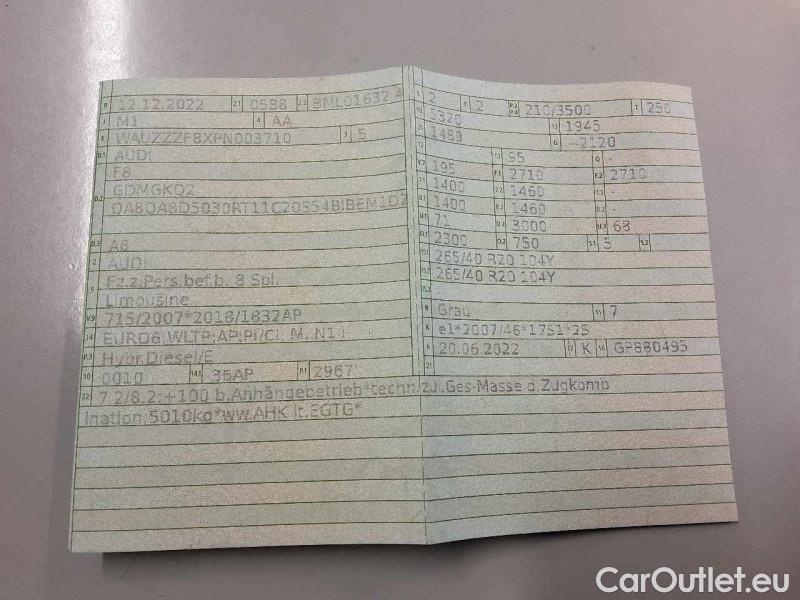 B 12.12.2022 2.1 0588 2.2 BML01632 4
J M1 4 AA
E WAUZZZF8XPN003710 3 5
D.1 AUDI
F8
D.2 GDMGKQ2
QA8QA8D5030RT11C20SS4BIBEM1DZ
D.3 A8
2 AUDI
5 Fz.z.Pers.bef.b. 8 Spl.
Limousine
V.9 715/2007*2018/1832AP
14 EURO6;WLTP;AP;PI/CI; M, N1 I
P.3 Hybr.Diesel/E
10 0010 14.1 36AP P.1 2967
L 2 9 2 P.2 P.4 210/3500 T 250
18 5320 19 1945
20 1489 G --2120
12 13 95 Q -
V.7 195 F.1 2710 F.2 2710
7.1 1400 7.2 1460 7.3 -
8.1 1400 8.2 1460 8.3 -
U.1 71 U.2 3000 U.3 68
O.1 2300 O.2 750 S.1 5 S.2 -
15.1 265/40 R20 104Y
15.2 265/40 R20 104Y
15.3
R Grau 11 7
K e1*2007/46*1751*25
6 20.06.2022 17 K 16 GP880495
21
22 7.2/8.2:+100 b.Anhängebetrieb*techn.zu.Ges-Masse d.Zugkomb
ination:5010kg*ww.AHK lt.EGTG*
CarOutlet.eu